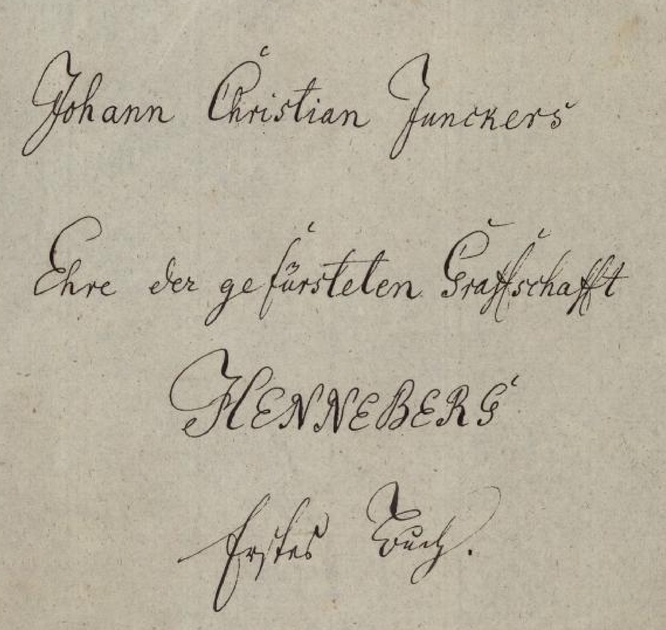 Johann Christian Junckers
Ehre der gefürsteten Graffschafft
HENNEBERG
Erstes Buch.